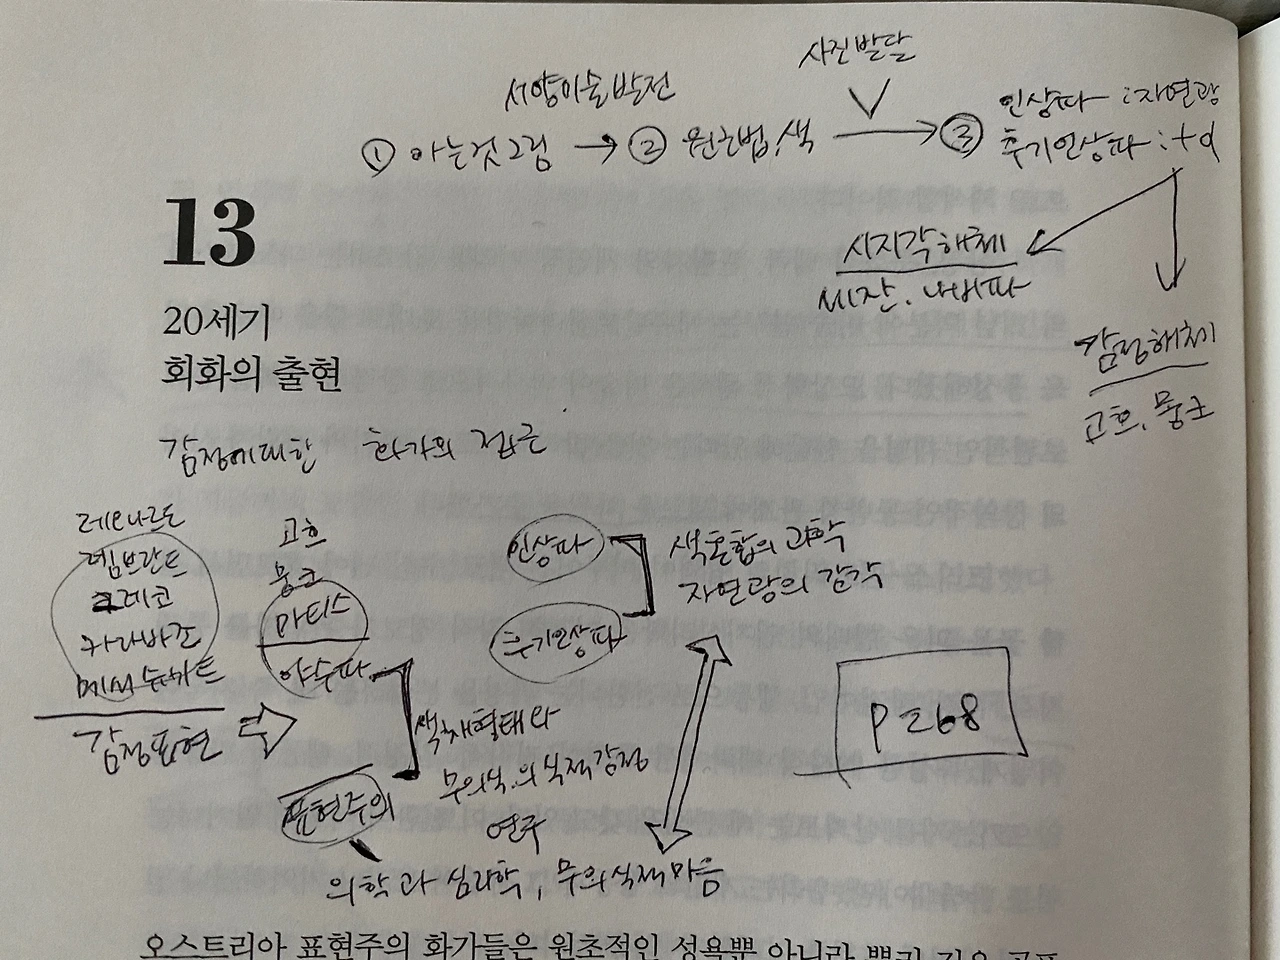 사진발달
서양미술발전
① 아는것그림 → ② 원근법, 색 → ③ 인상파 : 자연광
후기인상파 : +α
시지각해체
세잔. 나비파
감정해체
고흐, 뭉크
13
20세기
회화의 출현
감정에대한 화가의 접근
레오나르도
렘브란트
그레코
카라바조
메서슈미트
감정표현
고흐
뭉크
마티스
야수파
표현주의
색채형태와
무의식.의식적감정
연구
의학과 심리학, 무의식적마음
인상파
후기인상파
색혼합의 과학
자연광의 감각
P 268
오스트리아 표현주의 화가들은 원초적인 성욕뿐 아니라